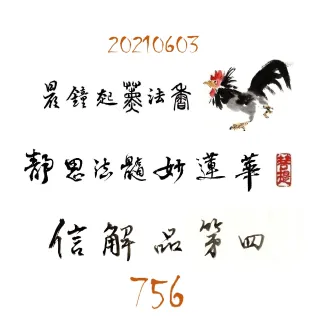 20210603
晨鐘起薰法香
靜思法髓妙蓮華
菩提
信解品第四
756